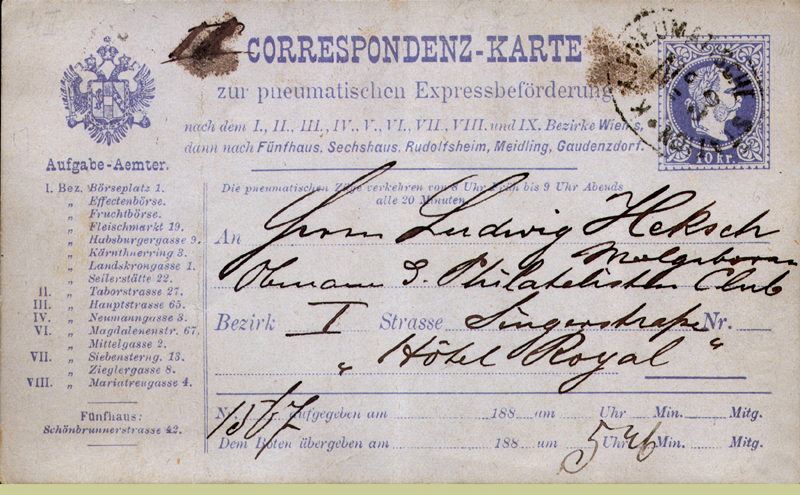 CORRESPONDENZ-KARTE
zur pneumatischen Expressbeförderung
nach dem I., II., III., IV., V., VI., VII., VIII. und IX. Bezirke Wien's,
dann nach Fünfhaus, Sechshaus, Rudolfsheim, Meidling, Gaudenzdorf.
10 kr.
Aufgabe-Aemter.
I. Bez. Börseplatz 1.
„ Effectenbörse.
„ Fruchtbörse.
„ Fleischmarkt 19.
„ Habsburgergasse 9.
„ Kärnthnerring 3.
„ Landskrongasse 1.
„ Seilerstätte 22.
II. „ Taborstrasse 27.
III. „ Hauptstrasse 65.
IV. „ Neumanngasse 3.
VI. „ Magdalenenstr. 67.
„ Mittelgasse 2.
VII. „ Siebensterng. 13.
„ Zieglergasse 8.
VIII. „ Mariatreugasse 4.
Fünfhaus:
Schönbrunnerstrasse 42.
Die pneumatischen Züge verkehren von 8 Uhr Früh bis 9 Uhr Abends
alle 20 Minuten.
An Herrn Ludwig Heksch
Obmann d. Philatelisten Club
Bezirk I Strasse Singerstraße Nr.
„ Hôtel Royal "
Nr. 15/67 aufgegeben am 188 um Uhr Min. Mitg.
Dem Boten übergeben am 188 um 5 Uhr 46 Min. Mitg.